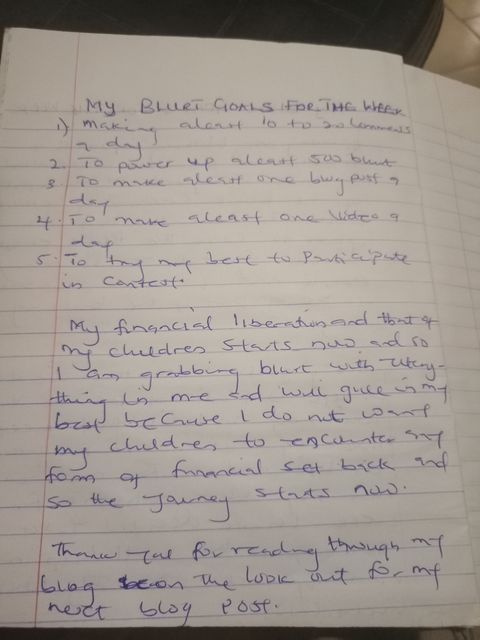 MY BLURT GOALS FOR THE WEEK
1) making aleast 10 to 20 comments
a day
2. To power up aleast 500 blurt
3 To make aleast one blog post a
day
4. To make aleast one video a
day
5. To try my best to Participate
in contest.
My financial liberation and that of
my children starts now ad so
I am grabbing blurt with every-
thing in me and will give in my
best because I do not want
my children to encounter any
form of financial set back and
so the journey starts now.
Thank you for reading through my
blog be on the look out for my
next blog post.